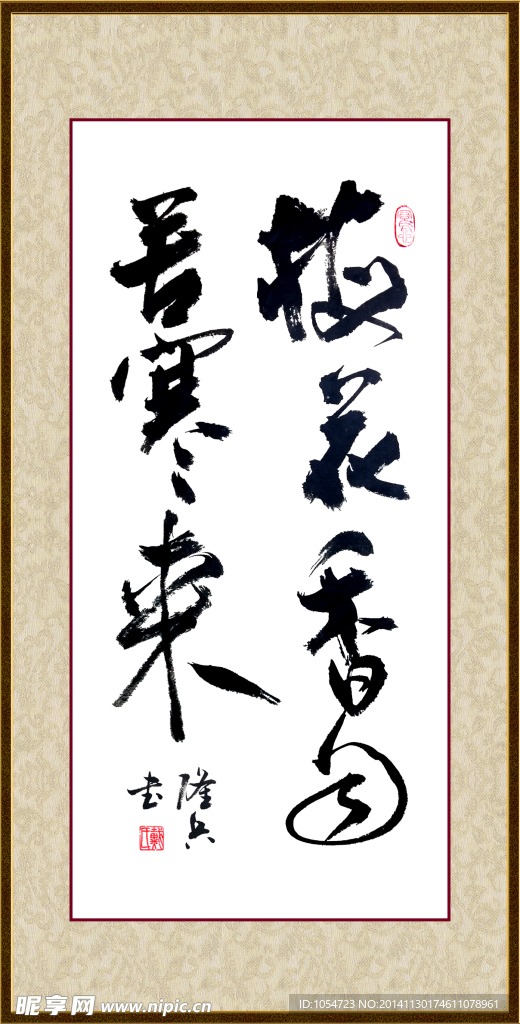 梅花香自
苦寒来
隆兵
书
昵享网 www.nipic.cn
ID:1054723 NO:20141130174611078961